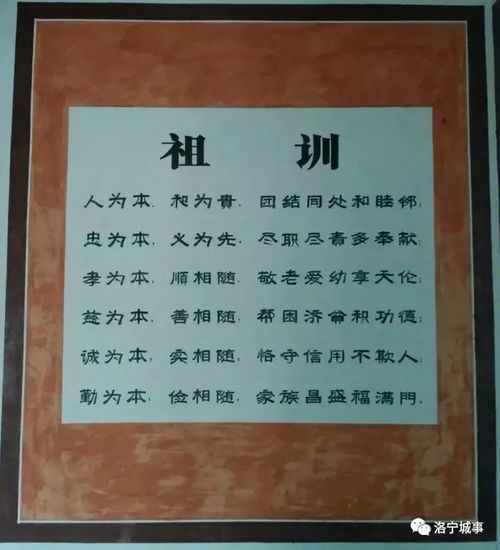 祖训
人为本，和为貴，团结同处和睦邻；
忠为本，义为先，尽职尽责多奉献；
孝为本，顺相随，敬老爱幼享天伦；
慈为本，善相随，帮困济贫积功德；
诚为本，实相随，恪守信用不欺人；
勤为本，俭相随，家族昌盛福满門。
洛宁城事